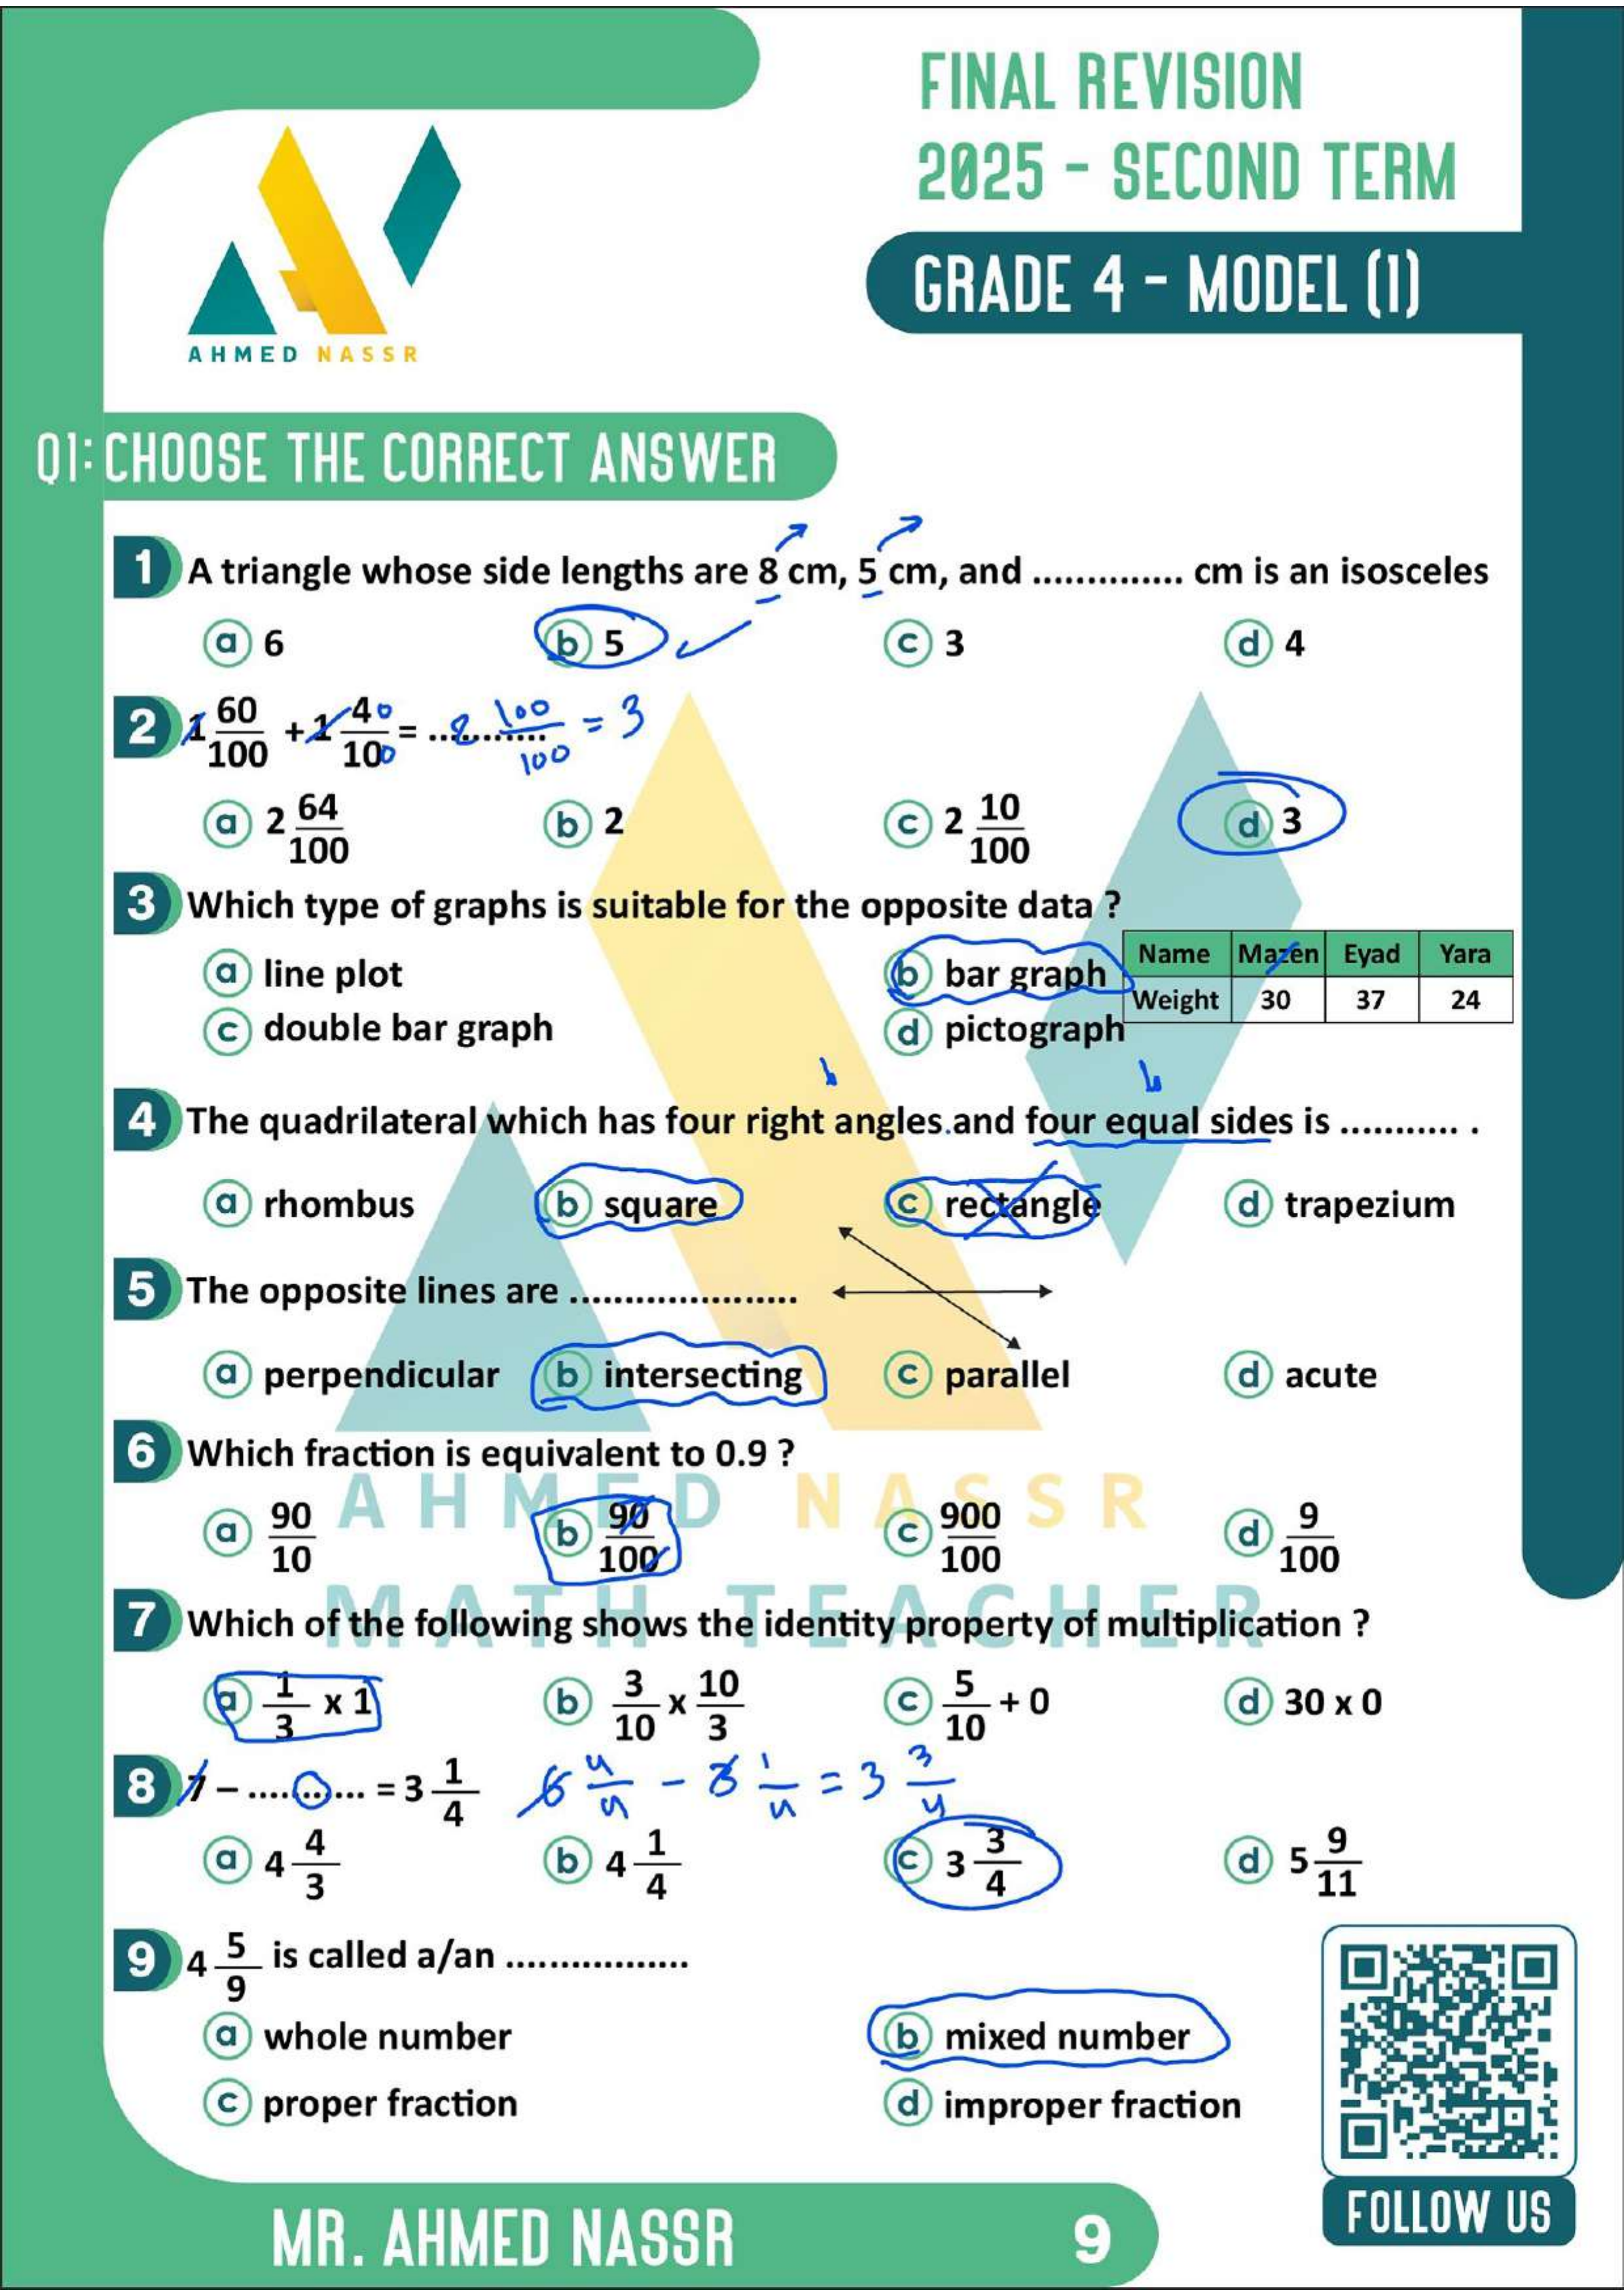 FINAL REVISION
2025 - SECOND TERM
GRADE 4 - MODEL (1)
AHMED NASSR
Q1: CHOOSE THE CORRECT ANSWER
1 A triangle whose side lengths are 8 cm, 5 cm, and .............. cm is an isosceles
a 6 b 5 c 3 d 4
2 1 60/100 + 1 40/100 = ........... 2 100/100 = 3
a 2 64/100 b 2 c 2 10/100 d 3
3 Which type of graphs is suitable for the opposite data ?
a line plot b bar graph
c double bar graph d pictograph
Name Mazen Eyad Yara
Weight 30 37 24
4 The quadrilateral which has four right angles.and four equal sides is ........... .
a rhombus b square c rectangle d trapezium
5 The opposite lines are .....................
a perpendicular b intersecting c parallel d acute
6 Which fraction is equivalent to 0.9 ?
a 90/10 b 90/100 c 900/100 d 9/100
AHMED NASSR
MATH TEACHER
7 Which of the following shows the identity property of multiplication ?
a 1/3 x 1 b 3/10 x 10/3 c 5/10 + 0 d 30 x 0
8 7 – ........... = 3 1/4 6 4/4 - 3 1/4 = 3 3/4
a 4 4/3 b 4 1/4 c 3 3/4 d 5 9/11
9 4 5/9 is called a/an .................
a whole number b mixed number
c proper fraction d improper fraction
FOLLOW US
MR. AHMED NASSR 9